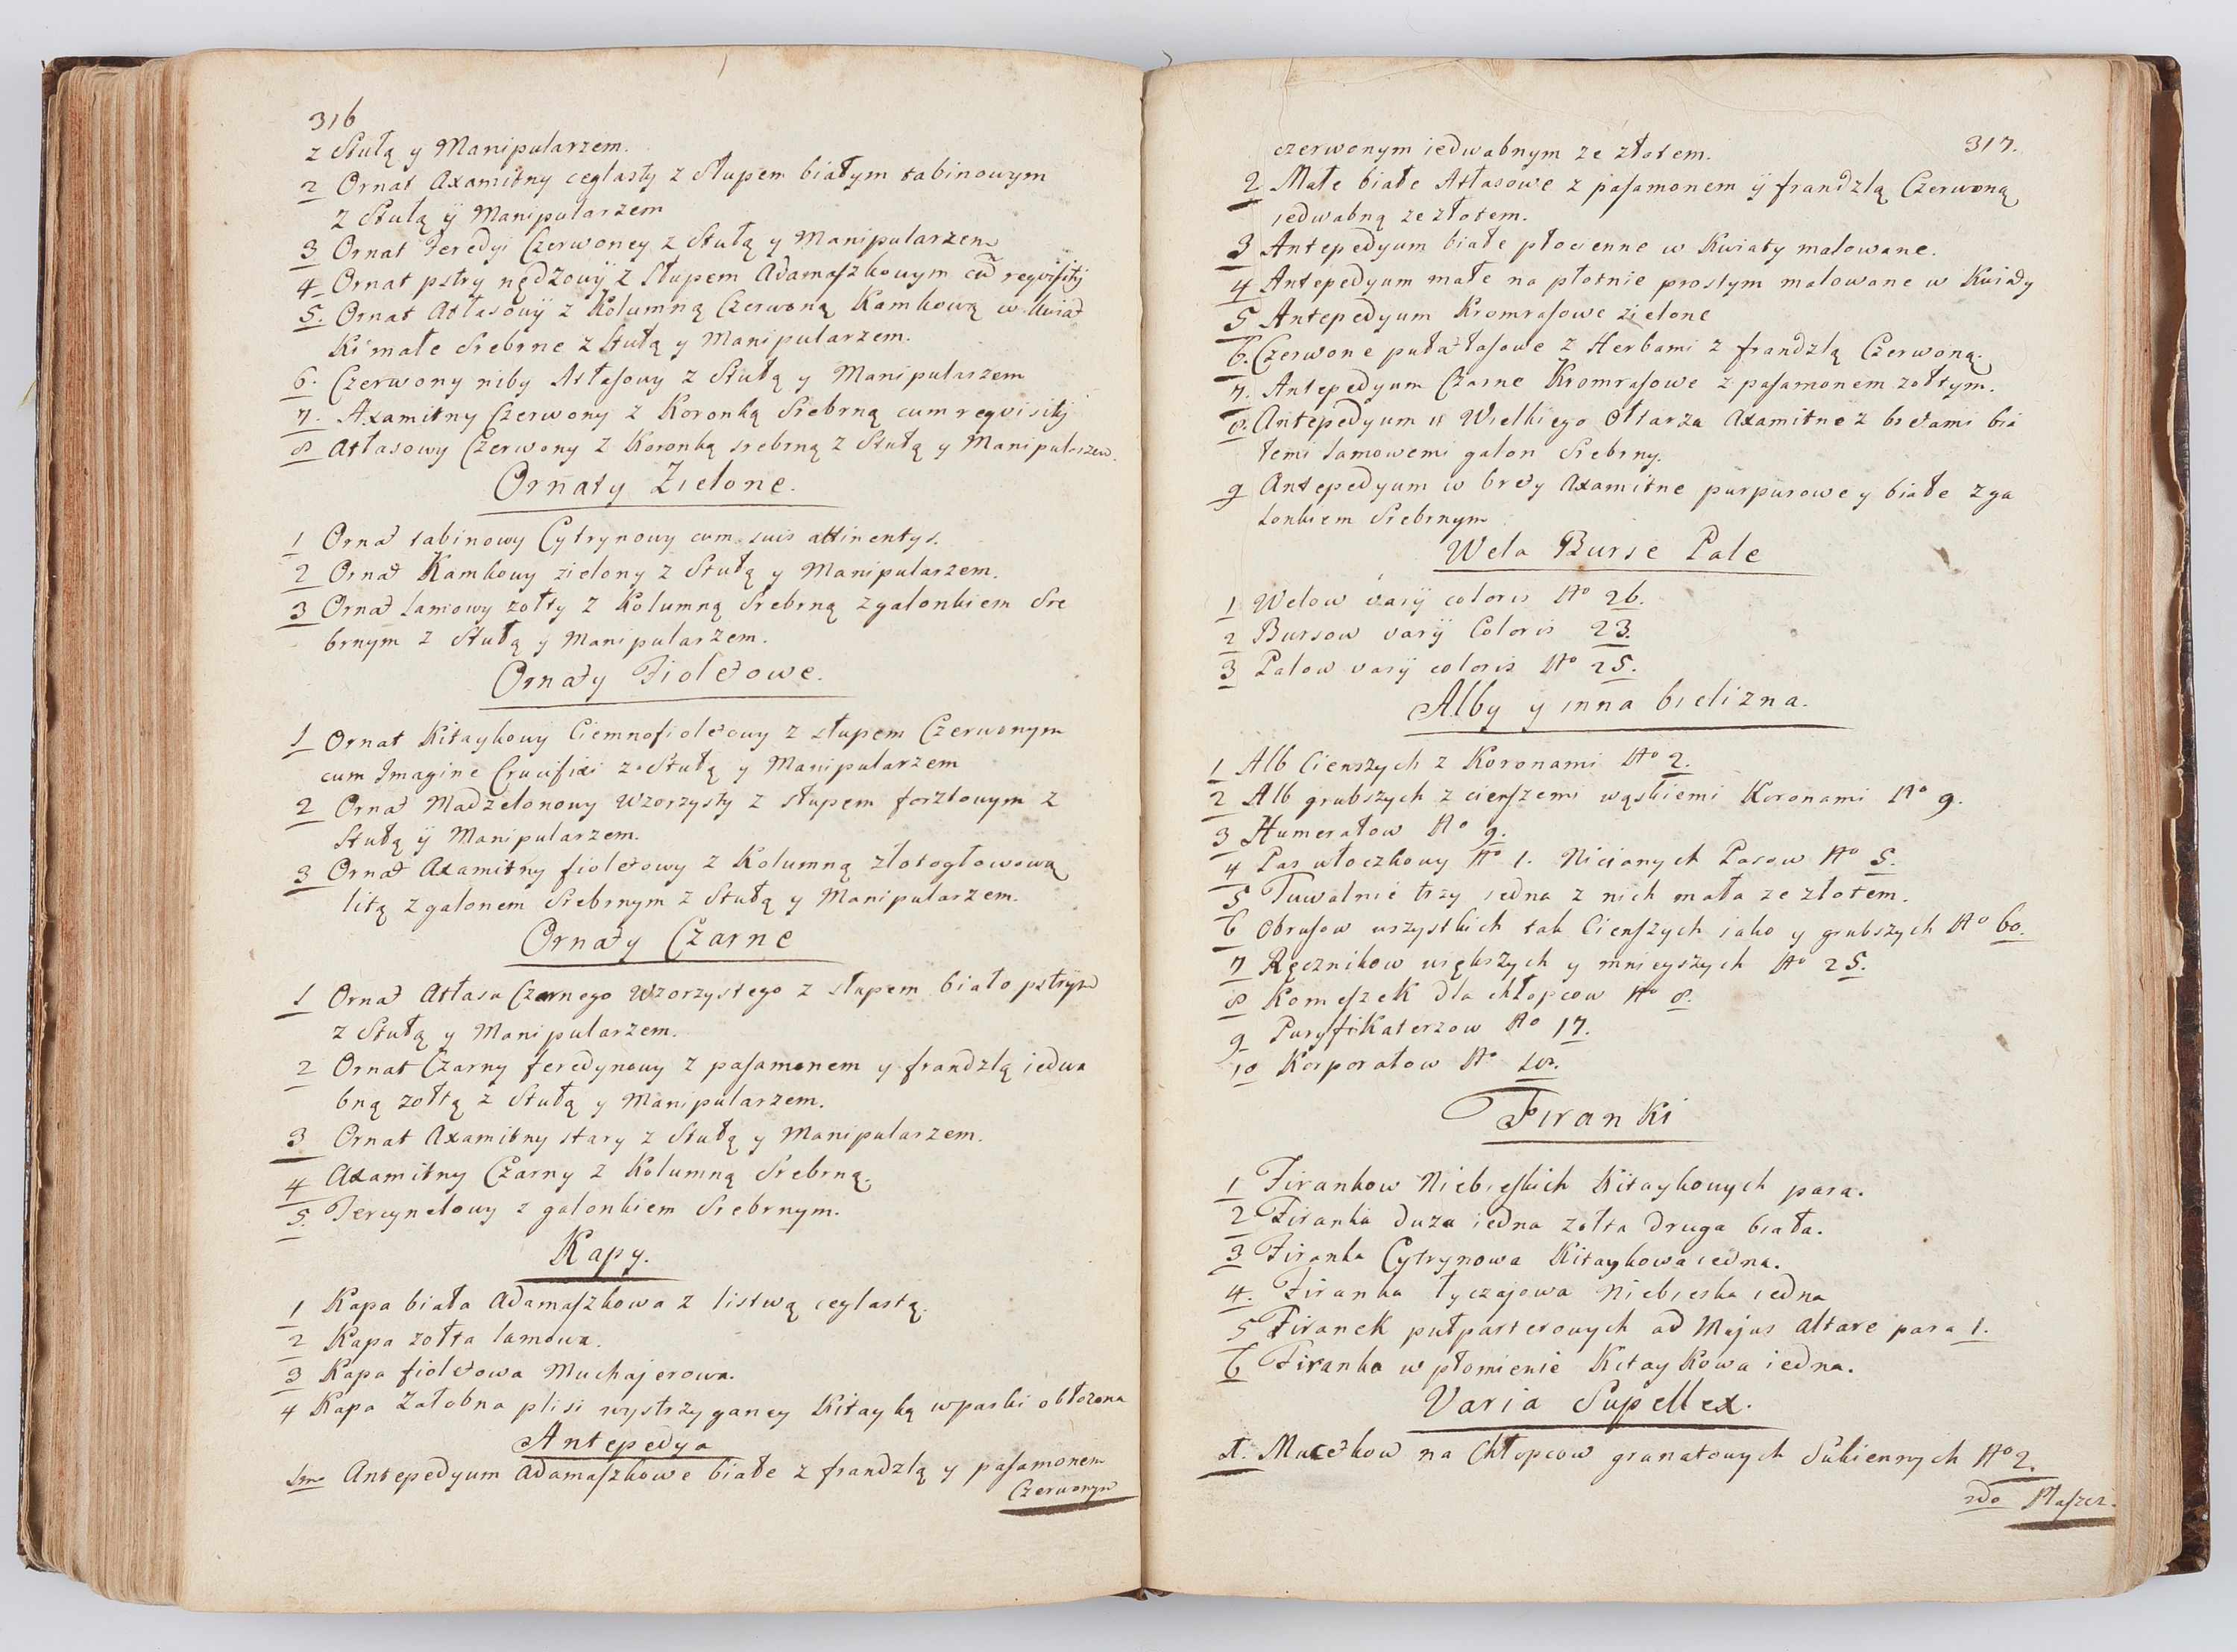 316
z Stułą y Manipularzem.
2 Ornat Axamitny ceglasty z Słupem białym tabinowym
z Stułą ÿ Manipularzem
3 Ornat Feredyi Czerwoney z Stułą y Manipularzem
4 Ornat pstry nędzowÿ z Słupem Adamaszkowym cũ reqvisitÿ
5. Ornat Atłasowÿ z Kolumną Czerwoną Kamkową w kwiat
ki małe Srebrne z Stułą y Manipularzem.
6. Czerwony niby Atłasowy z Stułą y Manipularzem
7. Axamitny Czerwony z Koronką Srebrną cum reqvisitÿ
8 Atłasowy Czerwony z Koronką srebrną z Stułą y Manipularzem.
Ornaty Zielone.
1 Ornat tabinowy Cytrynowy cum suis attinentys.
2 Ornat Kamkowy zielony z Stułą y Manipularzem.
3 Ornat Lamowy zołty z Kolumną Srebrną z galonkiem Sre
brnym z Stułą y Manipularzem.
Ornaty Fioletowe.
1 Ornat Kitaykowy Ciemnofioletowy z słupem Czerwonym
cum Imagine Crucifixi z Stułą y Manipularzem
2 Ornat Madzelonowy Wzorzysty z słupem forsztowym z
Stułą ÿ Manipularzem.
3 Ornat Axamitny fioletowy z Kolumną złotogłowową
litą z galonem Srebrnym z Stułą y Manipularzem.
Ornaty Czarne
1 Ornat Atłasu Czarnego Wzorzystego z słupem biało pstrym
z Stułą y Manipularzem.
2 Ornat Czarny feredynowy z pasamonem y frandzlą iedwa
bną zołtą z Stułą y Manipularzem.
3 Ornat Axamitny stary z Stułą y Manipularzem.
4 Axamitny Czarny z Kolumną Srebrną.
5. Tercynelowy z galonkiem Srebrnym.
Kapy.
1 Kapa biała Adamaszkowa z listwą ceglastą.
2 Kapa zołta lamowa.
3 Kapa fioletowa Muchajerowa.
4 Kapa Załobna plisi wystrzyganey Kitayką w paski obłożona
Antepedya
1mo Antepedyum Adamaszkowe białe z frandzlą y pasamonem
Czerwonym
317.
czerwonym iedwabnym ze złotem.
2 Małe białe Atłasowe z pasamonem ÿ frandzlą Czerwoną
iedwabną ze złotem.
3 Antepedyum białe płocienne w Kwiaty malowane.
4 Antepedyum małe na płotnie prostym malowane w Kwiaty
5 Antepedyum Kromrasowe zielone
6. Czerwone pułatłasowe z Herbami z frandzlą Czerwoną.
7. Antepedyum Czarne Kromrasowe z pasamonem zołtym.
8. Antepedyum u Wielkiego Ołtarza Axamitne z bretami bia
łemi lamowemi galon Srebrny.
9 Antepedyum w brety Axamitne purpurowe y białe z ga
lonkiem Srebrnym
Wela Burse Pale
1 Welow varÿ coloris No 26.
2 Bursow varÿ Coloris 23.
3 Palow varÿ coloris No 25.
Alby y inna bielizna.
1 Alb Cienszych z Koronami No 2.
2 Alb grubszych z cienszemi wąskiemi Koronami No 9.
3 Humerałow No 9.
4 Pas włoczkowy No 1. Nicianych Pasow No 5.
5 Tuwalnie trzy iedna z nich mała ze złotem.
6 Obrusow wszystkich tak Cienszych iako y grubszych No 60.
7 Ręcznikow większych y mnieyszych No 25.
8 Komeszek dla chłopcow No 8.
9 Puryfikaterzow No 17.
10 Korporałow No 10.
Firanki
1 Firankow Niebieskich Kitaykowych para.
2 Firanka duza iedna zołta druga biała.
3 Firanka Cytrynowa Kitaykowa iedna.
4. Firanka łyczajowa Niebieska iedna
5 Firanek pułparterowych ad Majus Altare para 1.
6 Firanka w płomienie Kitaykowa iedna.
Varia Supellex.
1. Mucetkow na Chłopcow granatowych Sukiennych No 2.
2do Płaszcz.